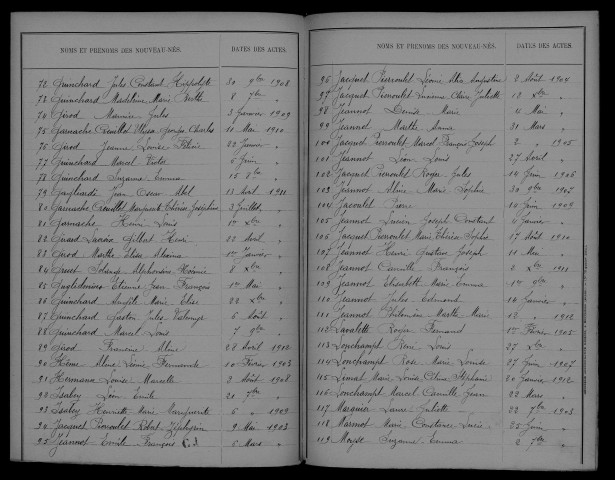 NOMS ET PRENOMS DES NOUVEAU-NÉS. DATES DES ACTES.
72 Guinchard Jules Constant Hippolyte 30 9bre 1908
73 Guinchard Madeleine Marie 8 7bre "
74 Girod Maurice Jules 3 Janvier 1909
75 Garnache Creuillot Georges Charles 10 Mai 1910
76 Girod Jeanne Louise 22 Janvier "
77 Guinchard Marcel Victor 6 Juin "
78 Guinchard Suzanne Emma 15 8bre "
79 Jean Oscar Abel 13 Avril 1911
80 Garnache Creuillot Marguerite Thérèse Joséphine 3 Juillet "
81 Garnache Henri Louis 1er Xbre "
82 Girard Gilbert Henri 22 Avril "
83 Girod Marthe 1er Janvier "
84 Solange Alphonsine 8 Xbre "
85 Etienne Jean François 1er Mai "
86 Guinchard Marie Elise 28 Xbre "
87 Guinchard Gaston Jules 6 Août "
88 Guinchard Marcel Louis 7 9bre "
89 Girod Francine Aline 28 Avril 1902
90 Aline Fernande 10 Février 1903
91 Hermann Louise Marcelle 2 Août 1908
92 Isabey Léon Emile 20 7bre "
93 Isabey Henriette Marie Marguerite 6 " 1909
94 Jacquet Pierroulet Robert Zéphyrin 9 Mai 1903
95 Jeannot Emile François 6 Mars "
NOMS ET PRENOMS DES NOUVEAU-NÉS. DATES DES ACTES.
96 Jacquet Pierroulet Augustine 2 Août 1904
97 Jacquet Pierroulet Suzanne Claire Juliette 12 Xbre "
98 Jeannot Denise Marie 4 Mai "
99 Jeannot Marthe 31 Mars "
100 Jacquet Pierroulet Marcel François Joseph 2 " 1905
101 Jeannot Léon Louis 27 Avril "
102 Jacquet Pierroulet Roger Jules 14 Juin 1906
103 Jeannot Marie Sophie 30 9bre 1907
104 Jacoulet 14 Juin 1909
105 Jeannot Lucien Joseph Constant 4 Janvier "
106 Jacquet Pierroulet Marie Thérèse 17 Août 1910
107 Jeannot Henri Gustave Joseph 11 Mai "
108 Jeannot Camille François 2 Xbre 1911
109 Jeannot Elisabeth Marie Emma 1er 9bre "
110 Jeannot Jules Edmond 14 Janvier "
111 Jeannot Philomène Marthe Marie 12 " 1912
112 Lavalette Roger Fernand 1er Février 1905
113 Lonchampt René Louis 27 Xbre "
114 Lonchampt Rose Marie Louise 27 Juin 1907
115 Marie Louise Céline Stéphanie 20 Janvier 1912
116 Lonchampt Marcel Camille Jean 22 Mars "
117 Laure Juliette 22 7bre 1903
118 Marmet Marie Constance Lucie 25 Juin "
119 Suzanne Emma 2 7bre "